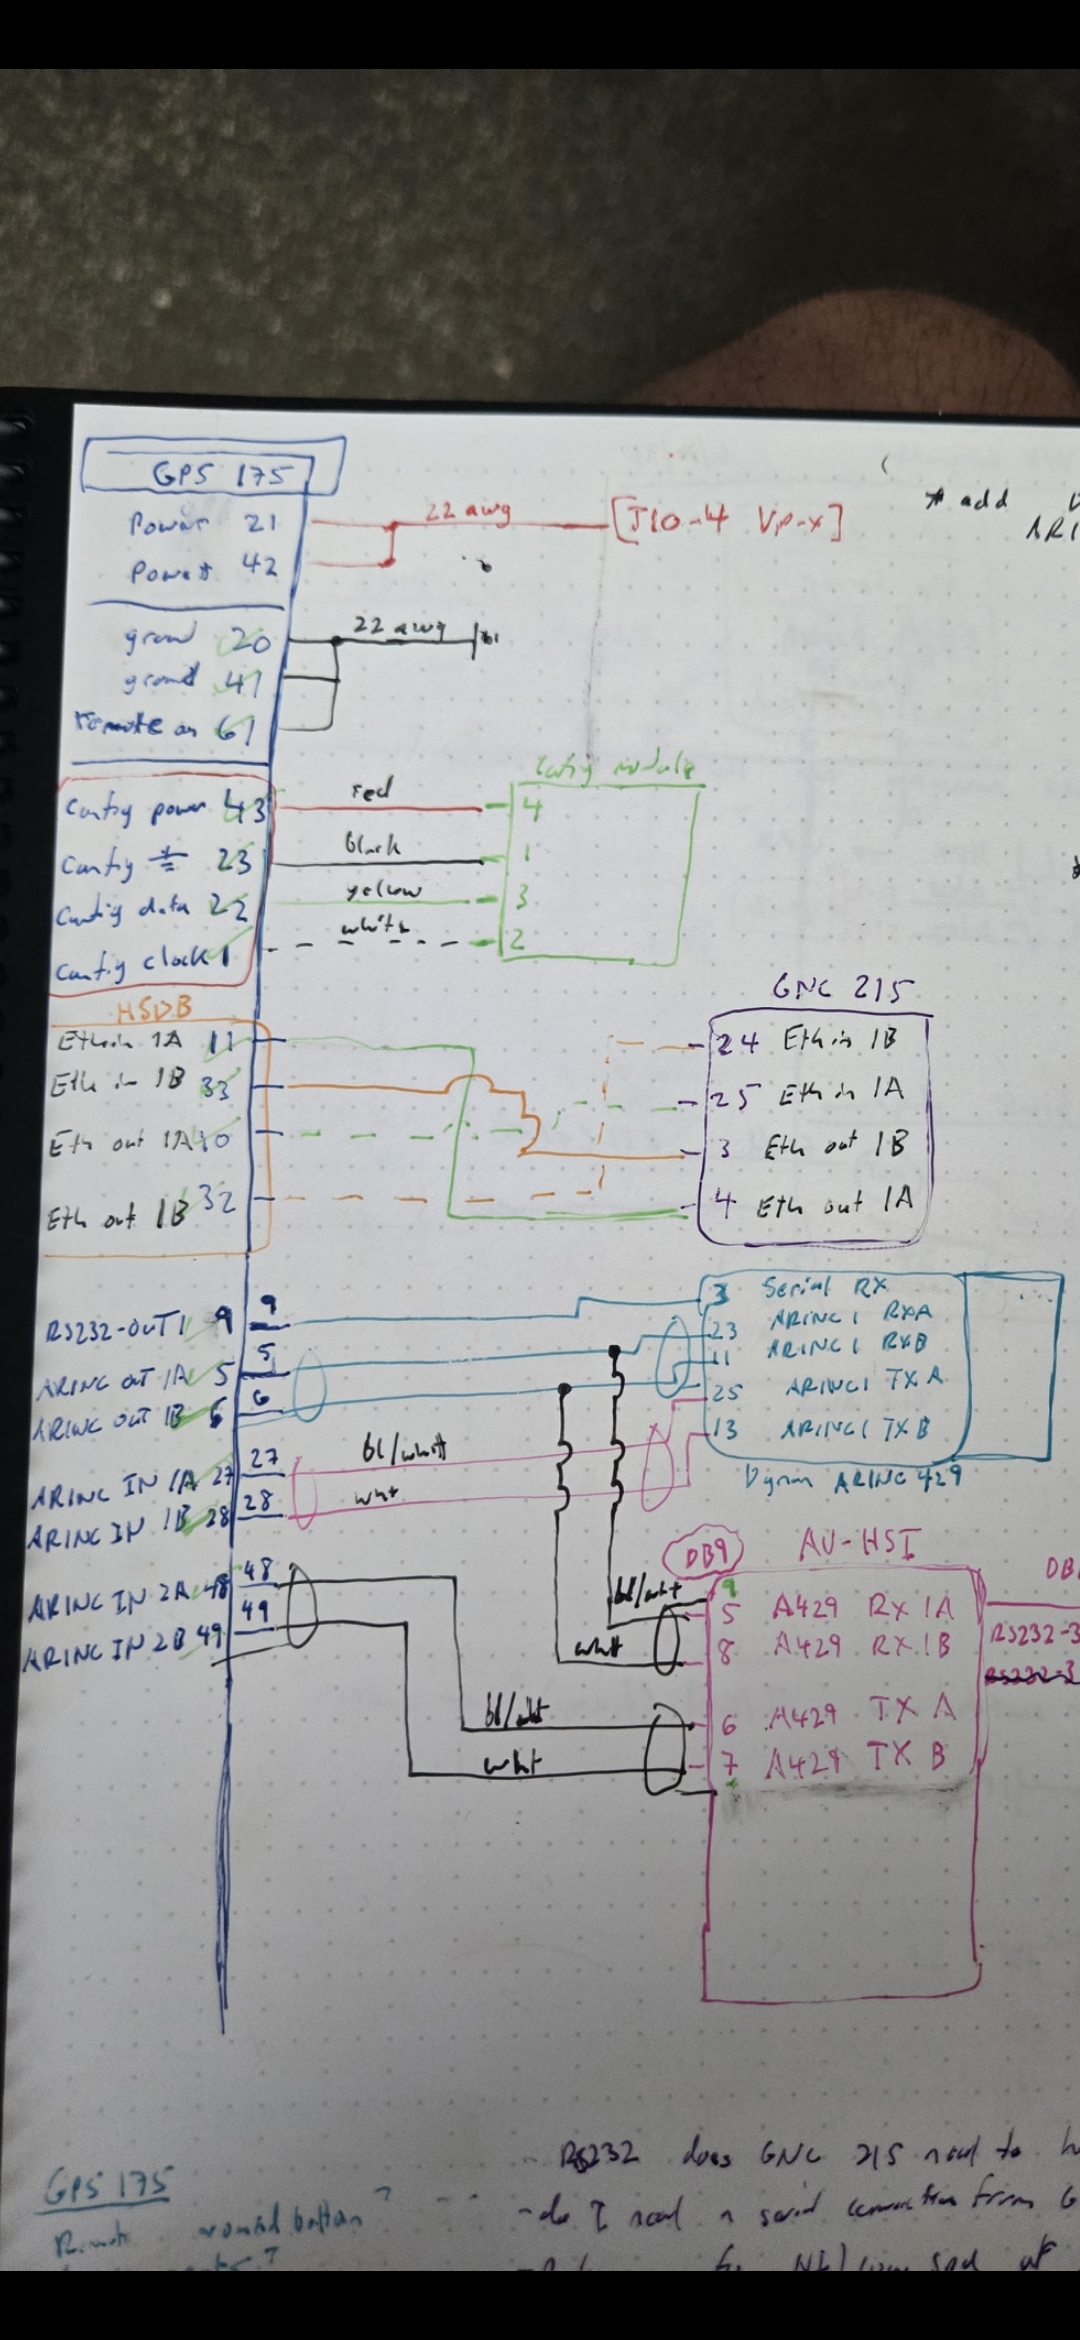 GPS 175
Power 21
Power 42
22 awg
[J10-4 VP-X]
* add
ARI
ground 20
ground 41
remote on 61
22 awg
Config module
Config power 43
red
4
Config 23
black
1
Config data 22
yellow
3
Config clock 1
white
2
HSDB
GNC 215
Eth in 1A 11
24 Eth in 1B
Eth in 1B 33
25 Eth in 1A
Eth out 1A 10
3 Eth out 1B
Eth out 1B 32
4 Eth out 1A
RS232-OUT 1 9
9
3 Serial RX
ARINC OUT 1A 5
5
23 ARINC 1 RXA
ARINC OUT 1B 6
6
11 ARINC 1 RXB
25 ARINC 1 TX A
13 ARINC 1 TX B
Dynon ARINC 429
ARINC IN 1A 27
27
bl/wht
ARINC IN 1B 28
28
wht
DB9
AV-HSI
DB
ARINC IN 2A 48
48
ARINC IN 2B 49
49
bl/wht
9
5 A429 RX 1A
RS232-3
wht
8 A429 RX 1B
RS232-3
bl/wht
6 A429 TX A
wht
7 A429 TX B
RS232 does GNC 215 need to h
GPS 175
- do I need a serial connection from G
Remote